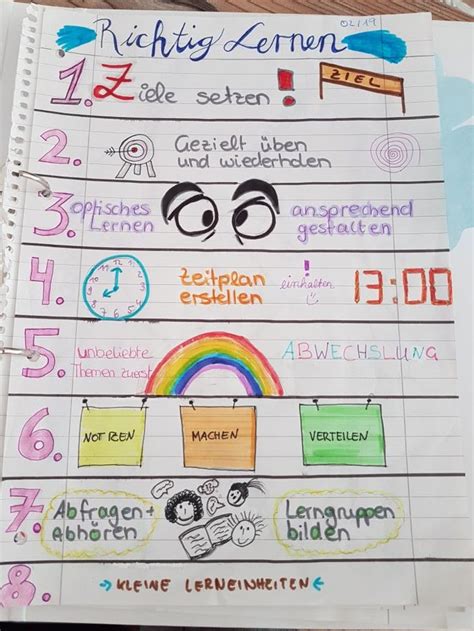 Richtig Lernen
02/19
1. Ziele setzen !
ZIEL
2. Gezielt üben
und wiederholen
3. optisches
Lernen
ansprechend
gestalten
4. Zeitplan
erstellen
!
einhalten
13:00
5. unbeliebte
Themen zuerst
ABWECHSLUNG
6. NOTIZEN
MACHEN
VERTEILEN
7. Abfragen +
Abhören
Lerngruppen
bilden
8. → KLEINE LERNEINHEITEN ←